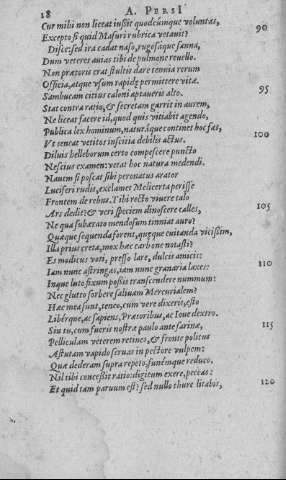 18 A. PERSI
Cur mihi non liceat iussit quodcunque voluntas,
Excepto si quid Masuri rubrica vetauit? 90
Disce: sed ira cadat naso, rugosaque sanna,
Dum veteres auias tibi de pulmone reuello.
Non prætoris erat stultis dare tenuia rerum
Officia, atque vsum rapidæ permittere vitæ.
Sambucam citius caloni aptaueris alto. 95
Stat contra ratio, & secretam garrit in aurem,
Ne liceat facere id, quod quis vitiabit agendo,
Publica lex hominum, naturáque continet hoc fas,
Vt teneat vetitos inscitia debilis actus. 100
Diluis helleborum certo compescere puncto
Nescius examen: vetat hoc natura medendi.
Nauem si poscat sibi peronatus arator
Luciferi rudis, exclamet Melicerta perisse
Frontem de rebus. Tibi recto viuere talo
Ars dedit: & veri speciem dinoscere calles, 105
Ne qua subærato mendosum tinniat auro?
Quæque sequenda forent, quæque euitanda vicissim,
Illa prius creta, mox hæc carbone notasti?
Es modicus voti, presso lare, dulcis amicis:
Iam nunc astringas, iam nunc granaria laxes: 110
Inque luto fixum possis transcendere nummum:
Nec glutto sorbere saliuam Mercurialem?
Hæc mea sunt, teneo, cum vere dixeris, esto
Libérque, ac sapiens, Prætoribus, ac Ioue dextro.
Sin tu, cum fueris nostræ paulo ante farinæ, 115
Pelliculam veterem retines, & fronte politus
Astutam vapido seruas in pectore vulpem:
Quæ dederam supra repeto, funémque reduco.
Nil tibi concessit ratio: digitum exere, peccas:
Et quid tam paruum est? sed nullo thure litabis, 120